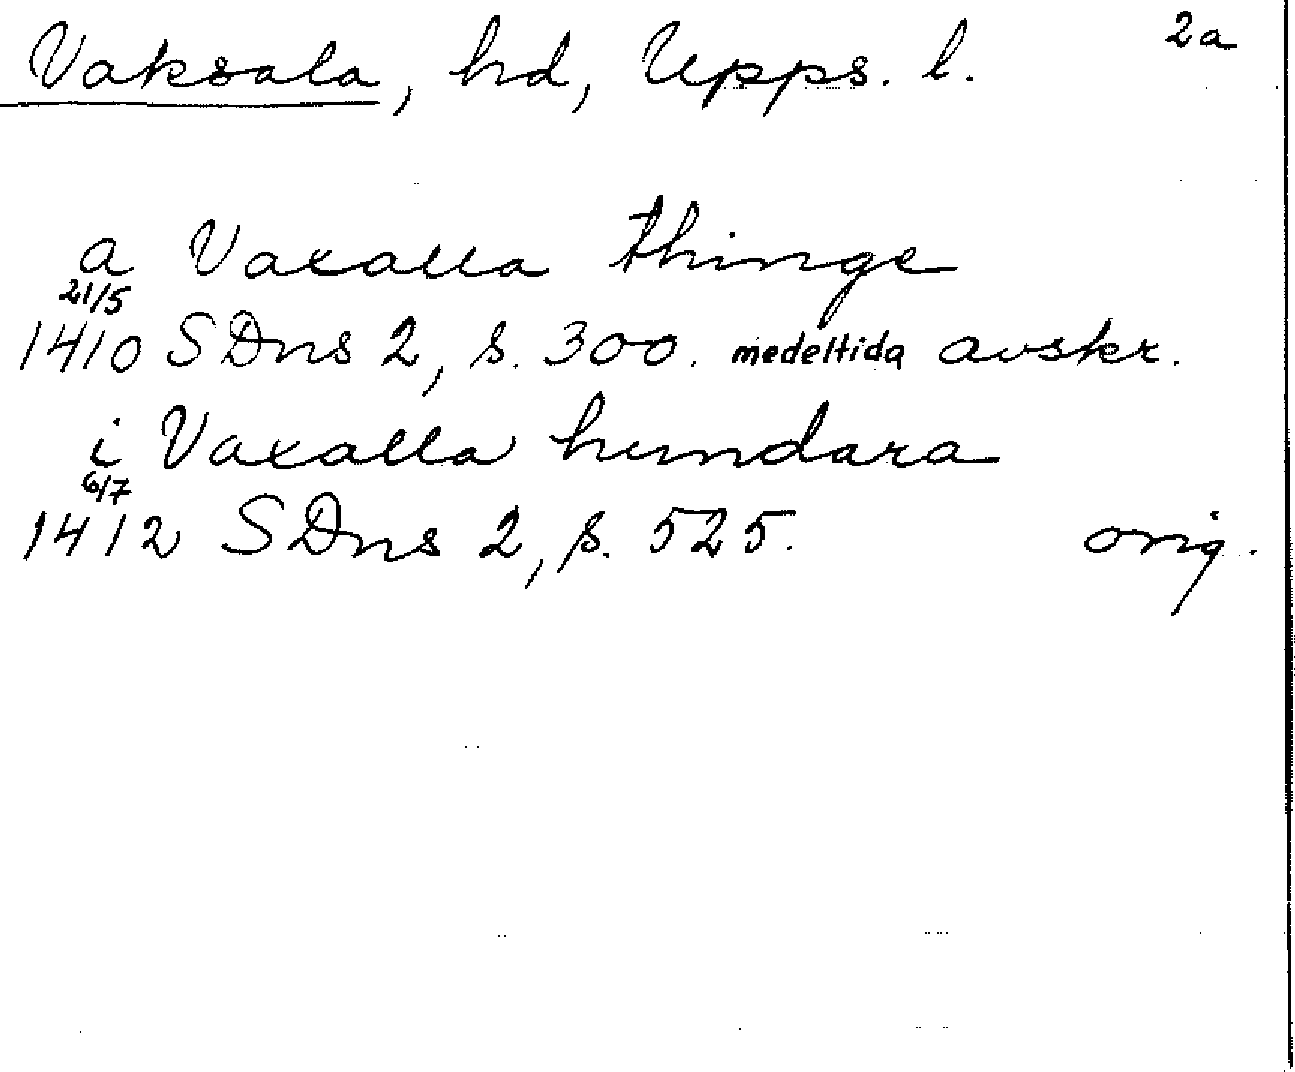 Vaksala, hd, Upps. l. 2a
a Vaxalla thinge
21/5
1410 SDns 2, s. 300. medeltida avskr.
i Vaxalla hundara
6/7
1412 SDns 2, s. 525. orig.